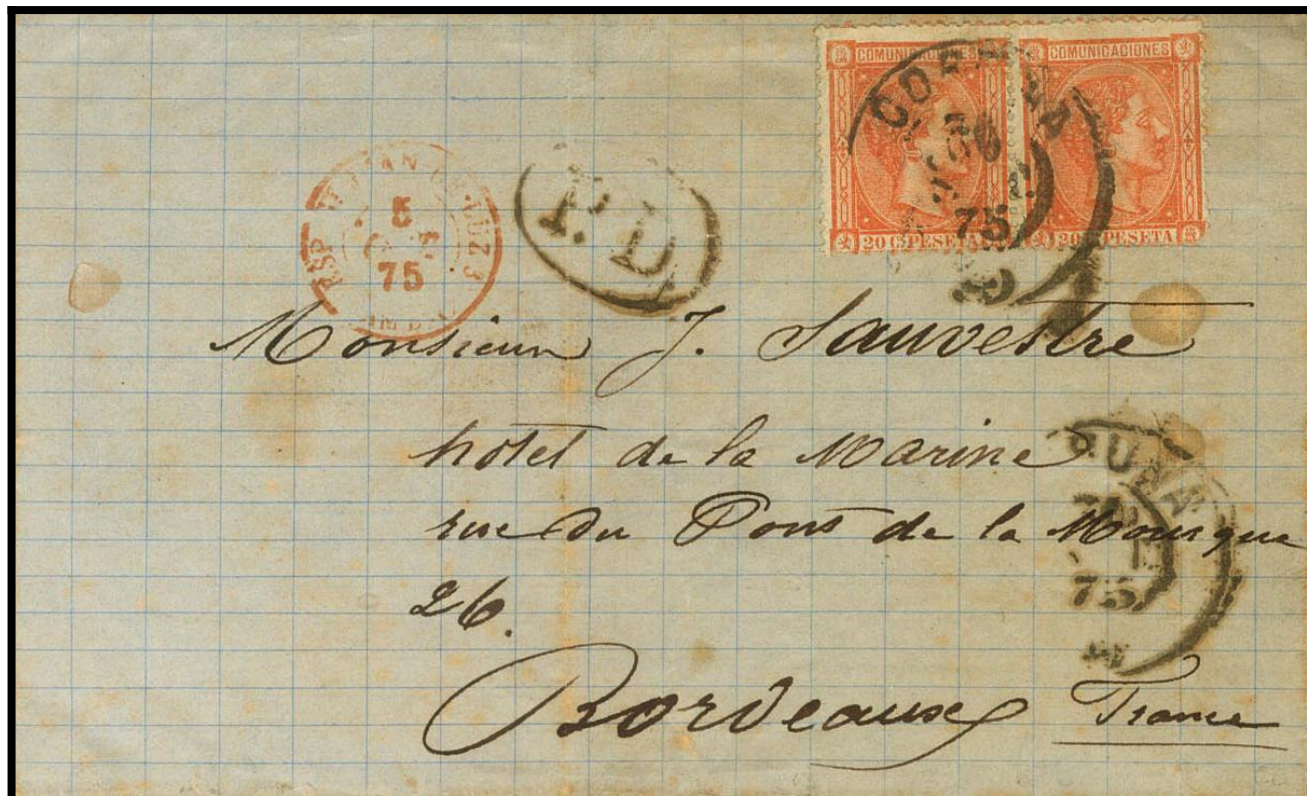 COMUNICACIONES COMUNICACIONES
20 C. PESETA 20 C. PESETA
CORUÑA
75
5
75
P.D
Monsieur J. Sauvestre
hotel de la Marine
rue du Pont de la Mousque
26.
Bordeaux France
RUÑA
75